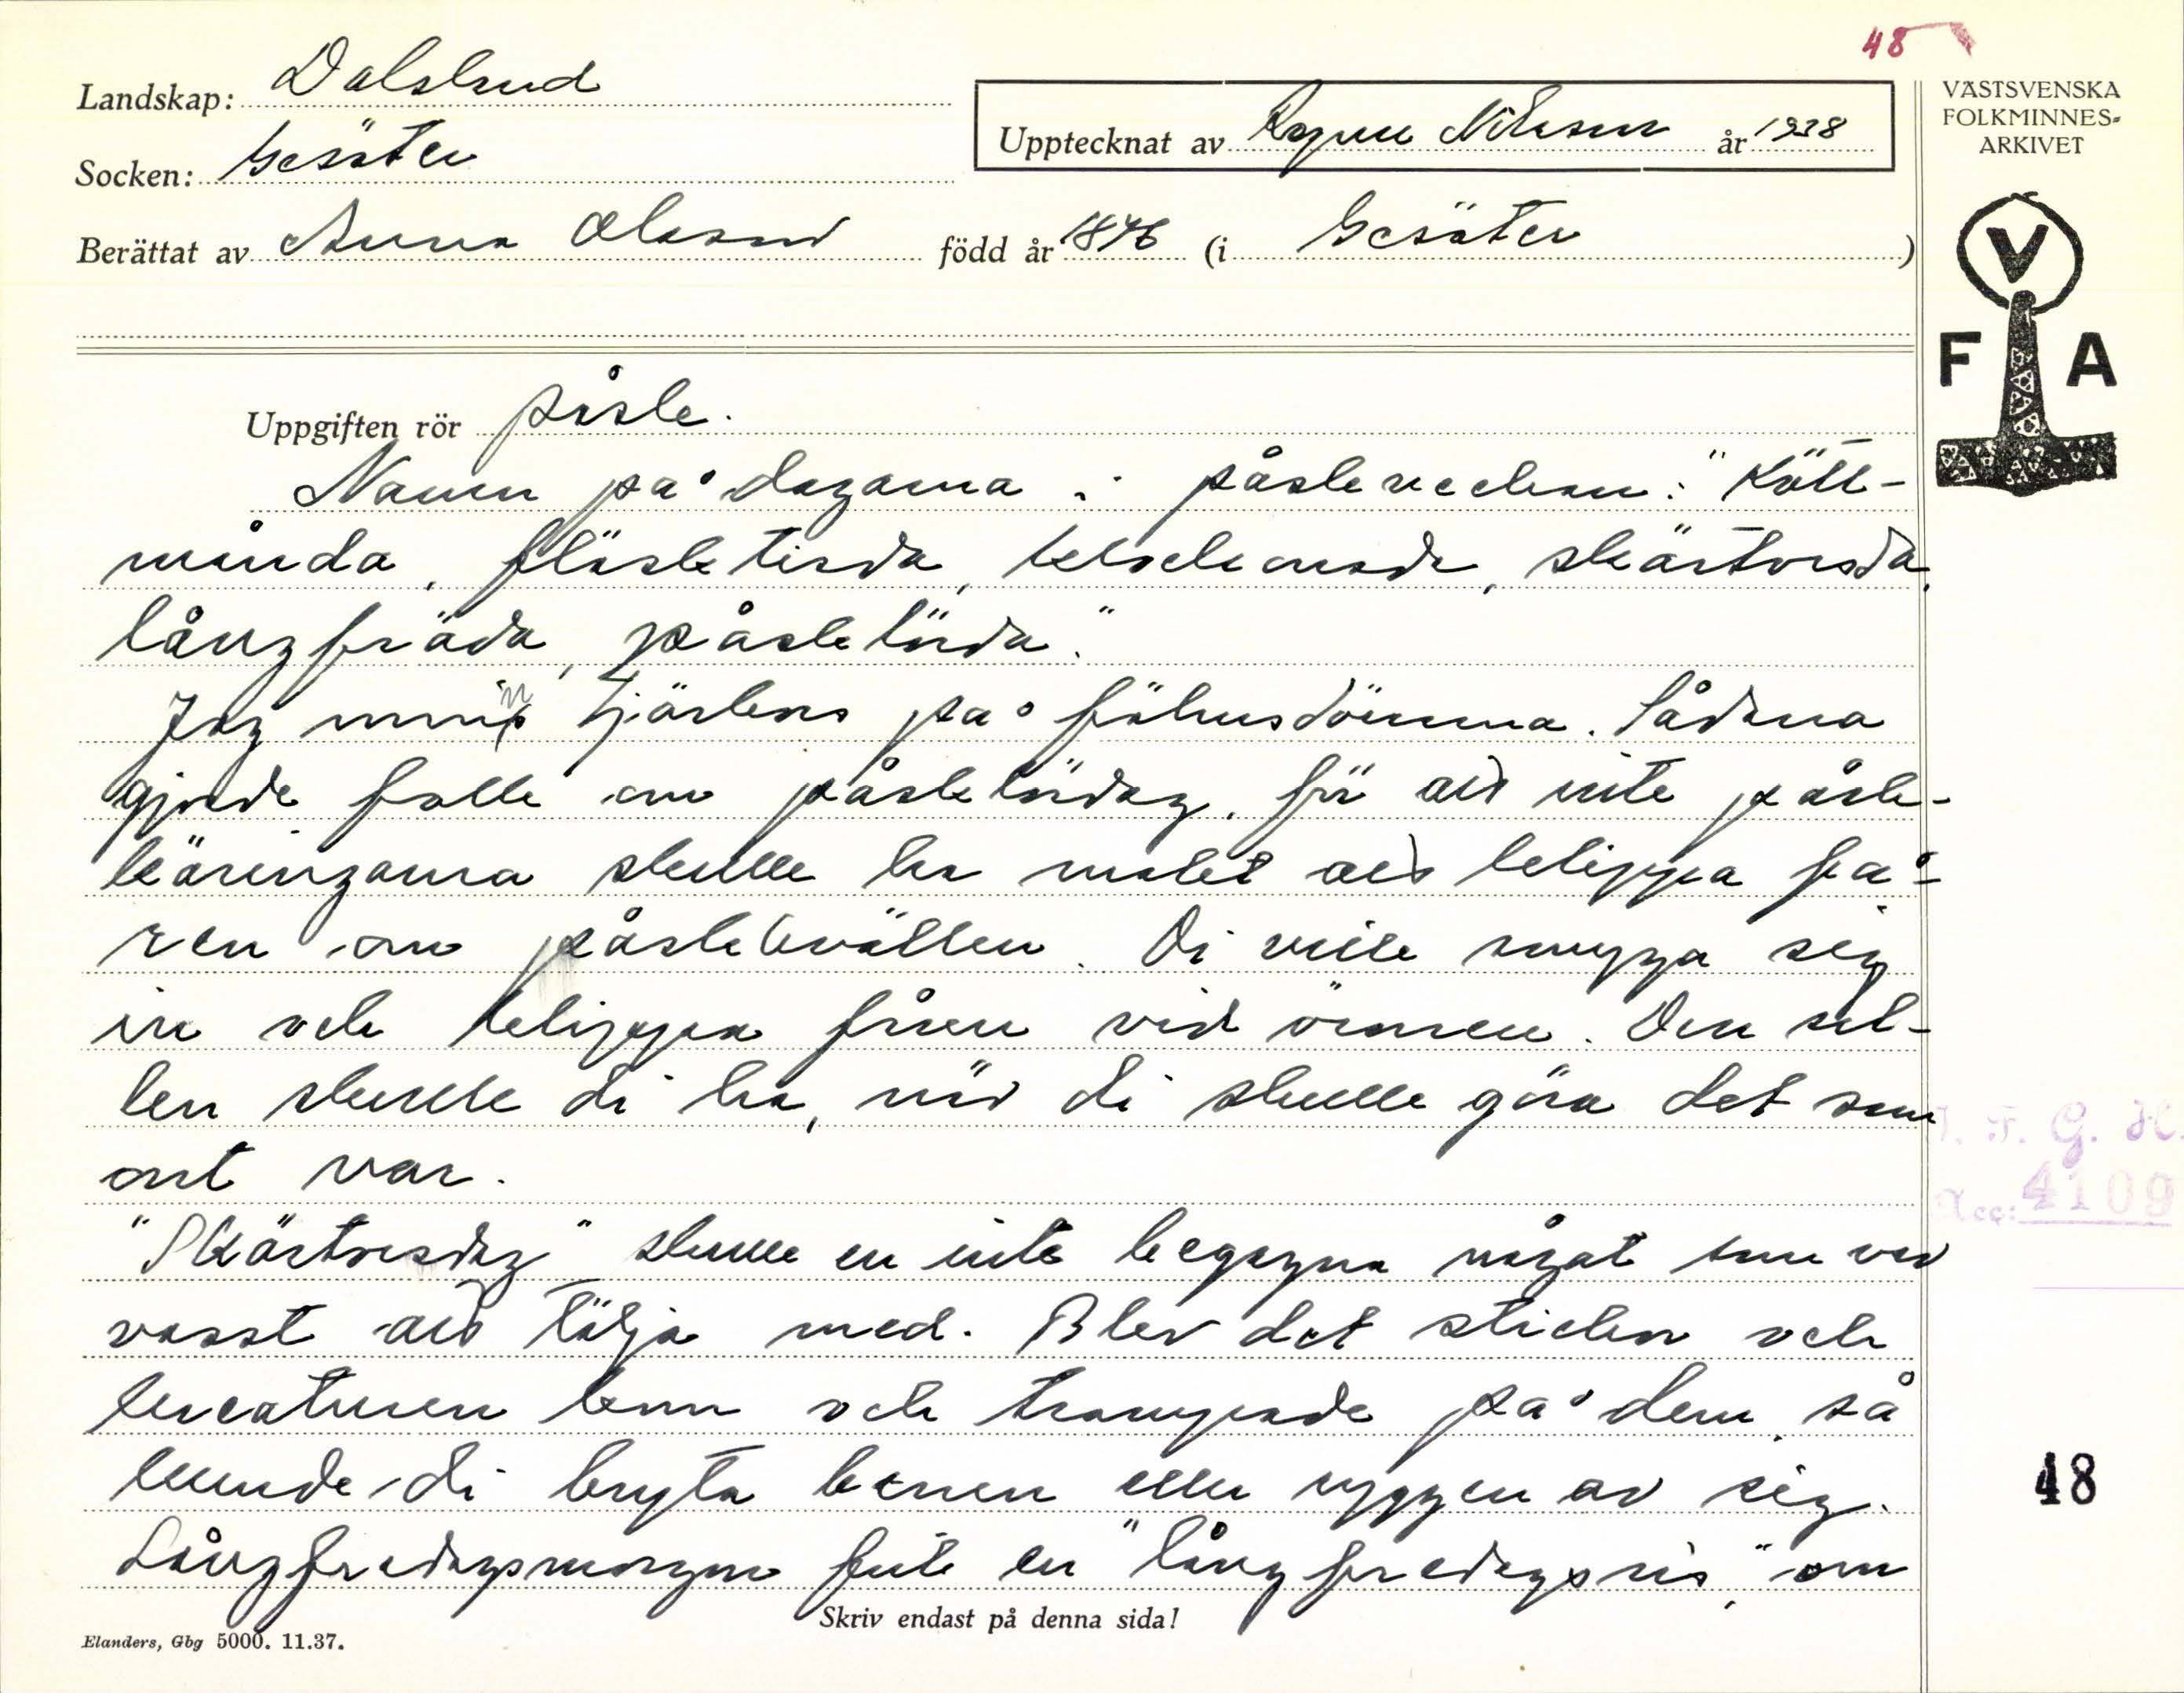 48
Landskap: Dalsland
Socken: Gesäter
Upptecknat av Ragnar Nilsson år 1938
VÄSTSVENSKA
FOLKMINNES-
ARKIVET
Berättat av Anna Olsson född år 1846 (i Gesäter)
V
F A
Uppgiften rör påsk.
Namn på dagarna i påskveckan: "Kött-
månda, fläsktisda, askeonsda, skärtorsda,
långfräda, påsklörda."
Jag minns tjärkors på föhusdörrna. Sådana
gjorde folk om påsklördag, för att inte påsk-
käringarna skulle ha makt att klippa få-
ren om påskkvällen. Di ville smyga sig
in och klippa fåren vid öronen. Den ul-
len skulle di ha, när di skulle göra det som
ont var.
"Skärtorsdag" skulle en inte begagna något som var
vasst att tälja med. Blev det stickor och
kreaturen kom och trampade på dem, så
kunde di bryta benen eller ryggen av sig.
Långfredagsmorgon fick en "långfredagsris," om
Skriv endast på denna sida!
Elanders, Gbg 5000. 11.37.
I. F. G. H.
Acc: 4109
48